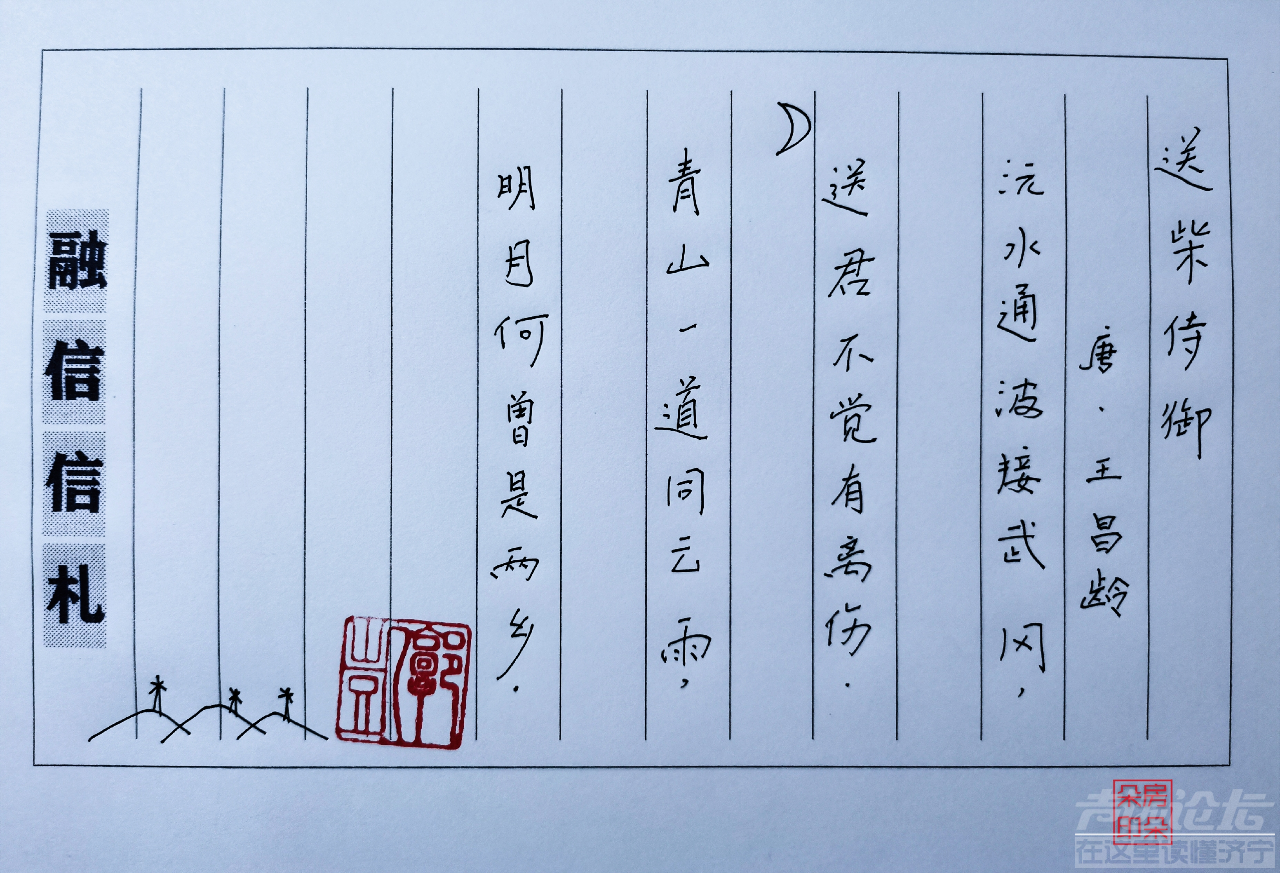 送柴侍御
唐·王昌龄
沅水通波接武冈，
送君不觉有离伤.
青山一道同云雨，
明月何曾是两乡.
融信信札
声远论坛
在这里读懂济宁